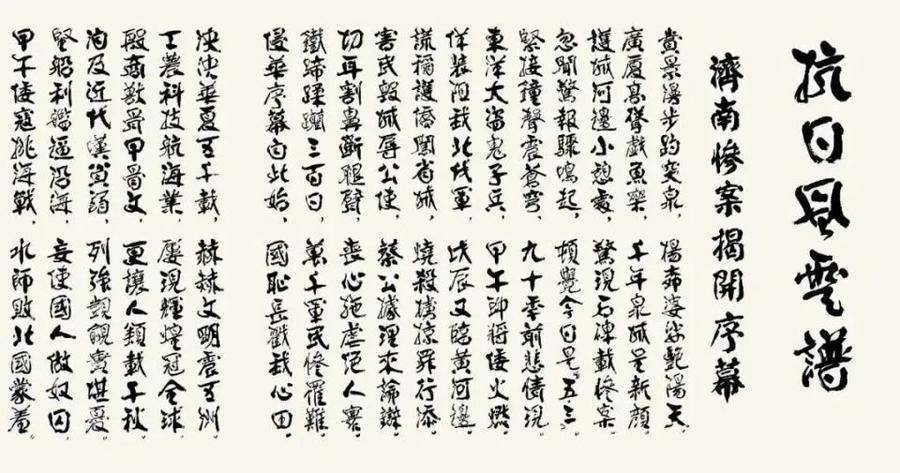 抗日風雲譜
濟南慘案揭開序幕
賞景漫步趵突泉，楊婆娑艷陽天。
廣廈高聳戲魚樂，千年泉城呈新顏。
護城河邊小憩處，驚現石碑載慘案。
忽聞警報驟鳴起，頓覺今日是五三。
緊接撞聲震蒼穹，九十年前悲情現。
東洋大盜鬼子兵，甲午即將倭火燃。
佯裝阻截北伐軍，戊辰又臨黃河邊。
謊稱護僑闖省城，燒殺擄掠罪行添。
害民毀城辱公使，蔡公據理來論辯。
切耳割鼻斷腿臂，喪心施虐絕人寰。
鐵蹄蹂躪三百日，萬千軍民慘罹難。
侵華序幕由此始，國恥長戳我心田。
泱泱華夏五千載，赫赫文明震五洲。
工農科技航海業，屢現輝煌冠全球。
殷商獸骨甲骨文，更讓人類載千秋。
及近代漢弱，列強覬覦實堪憂。
堅船利艦逼沿海，妄使國人做奴囚。
甲午倭寇挑海戰，水師敗北國蒙羞。